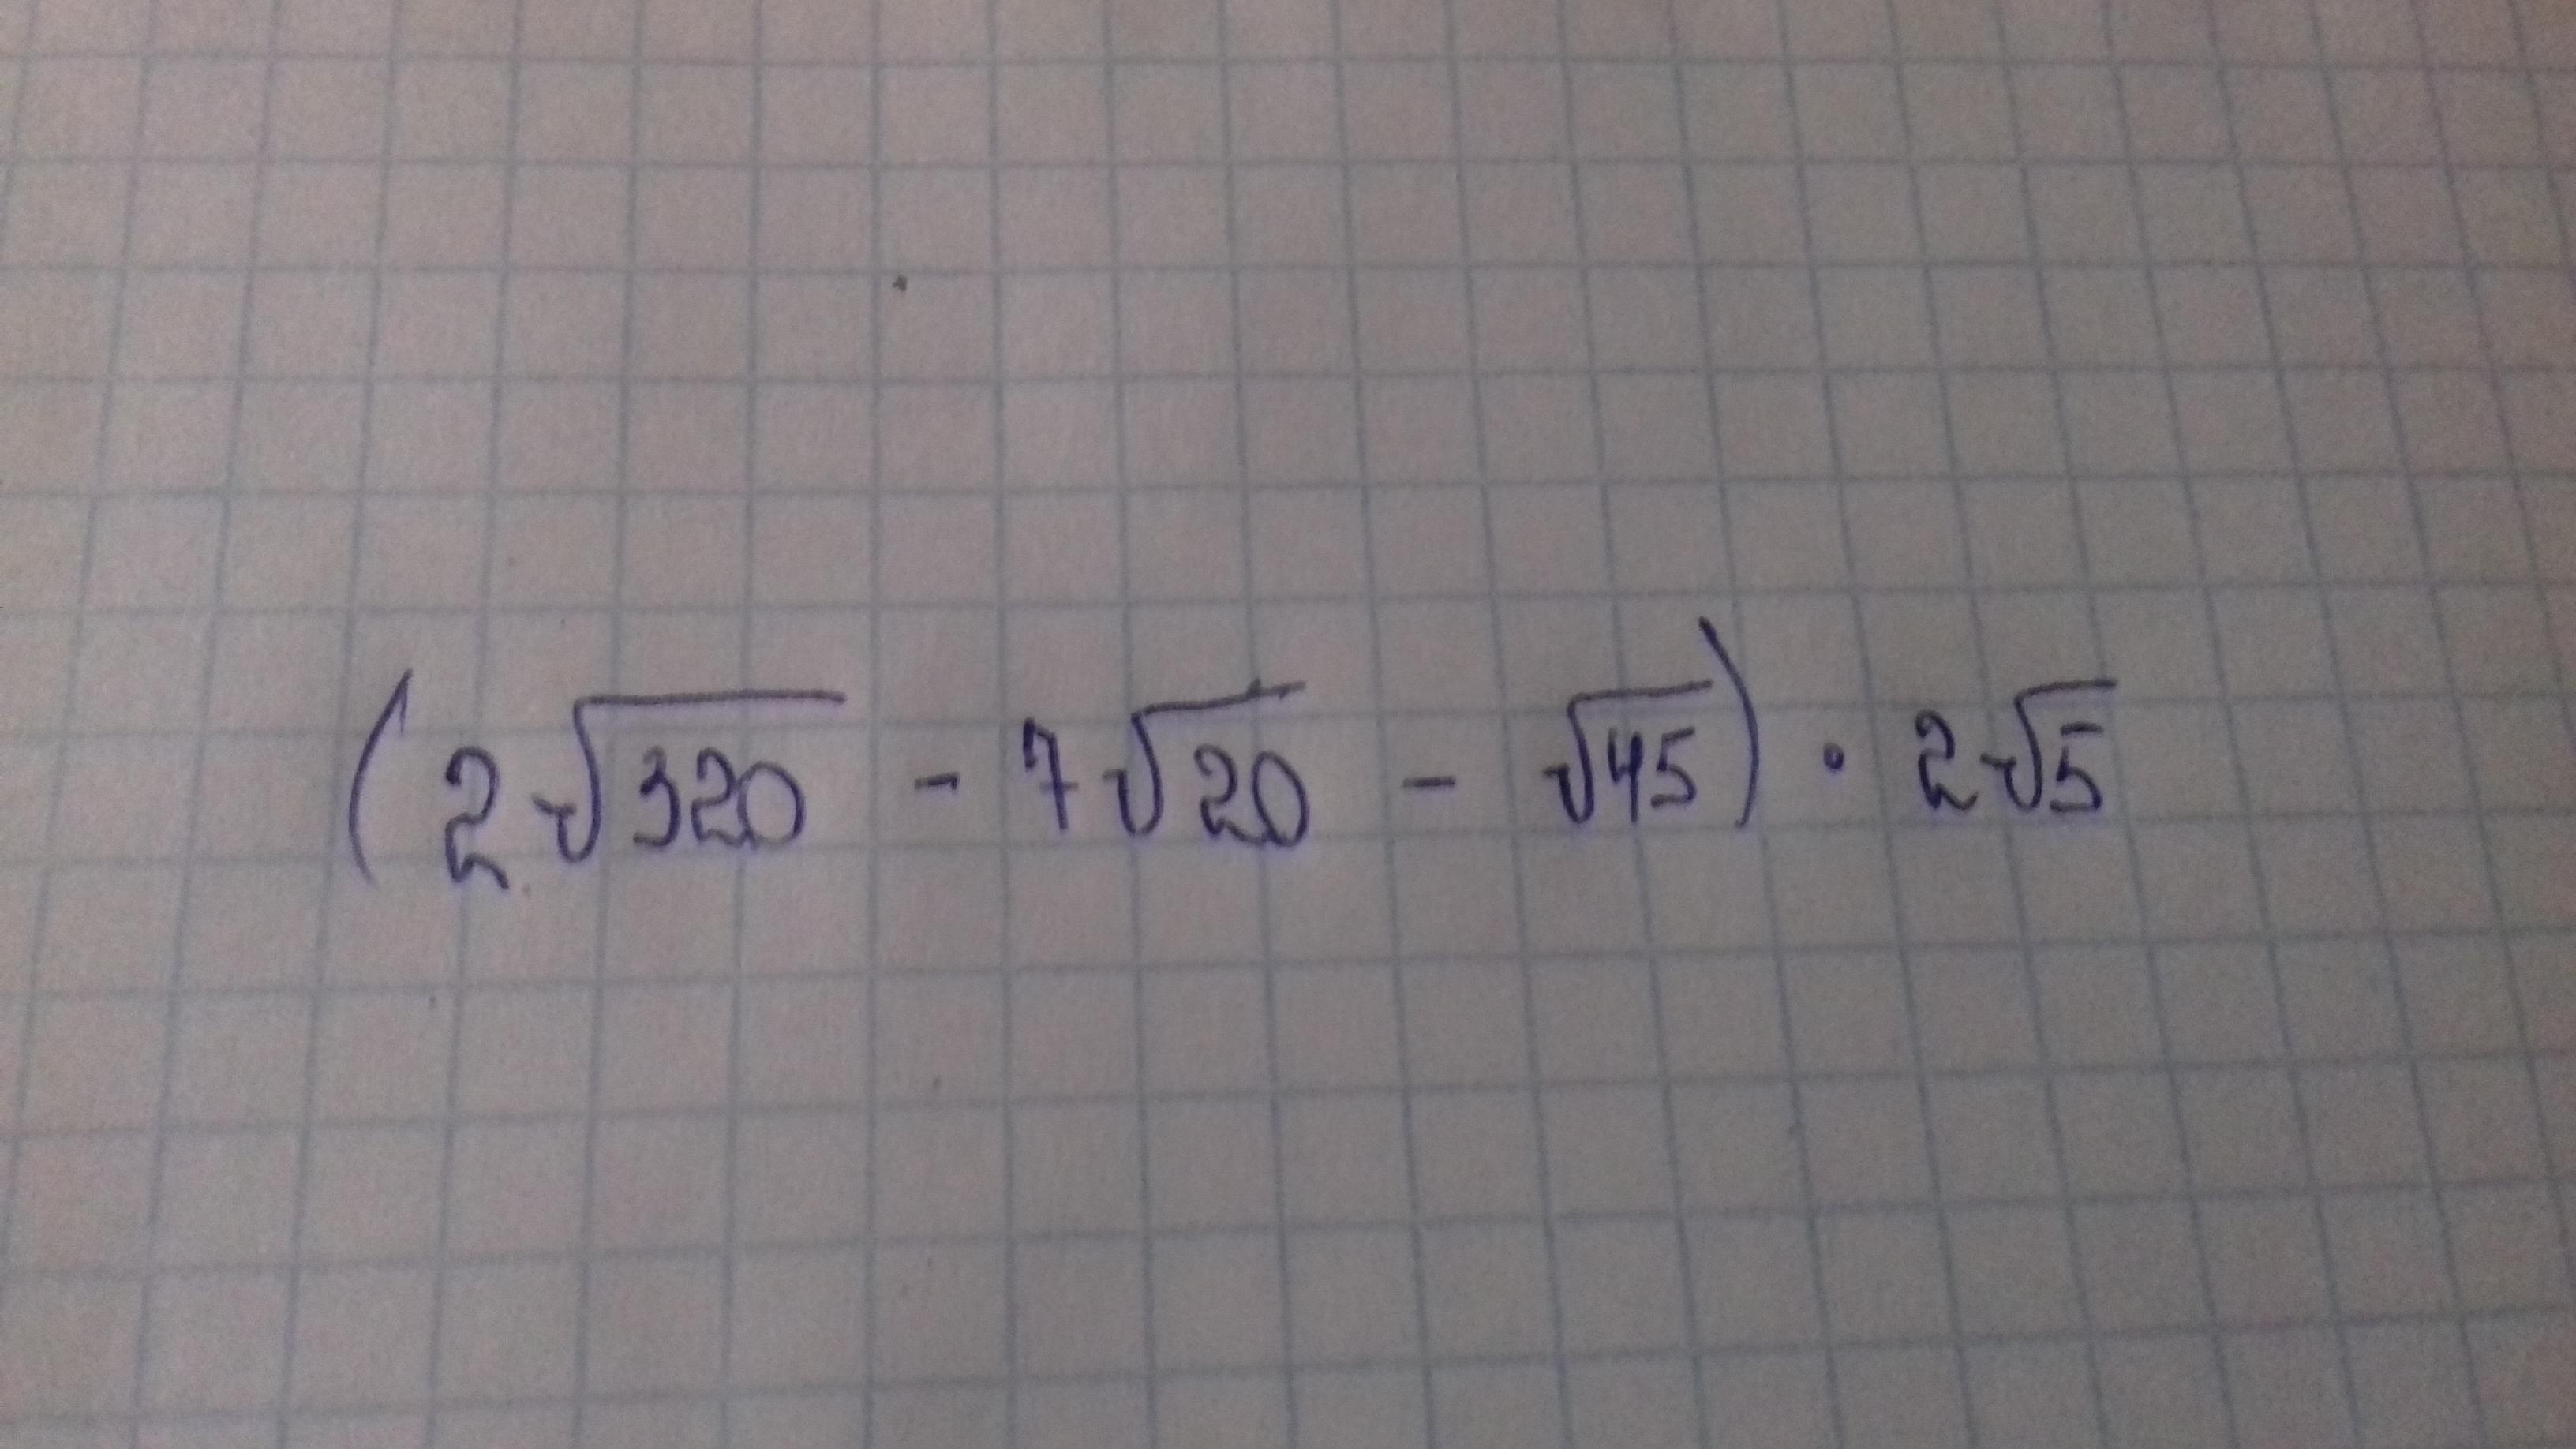 (2√320 - 7√20 - √45) · 2√5